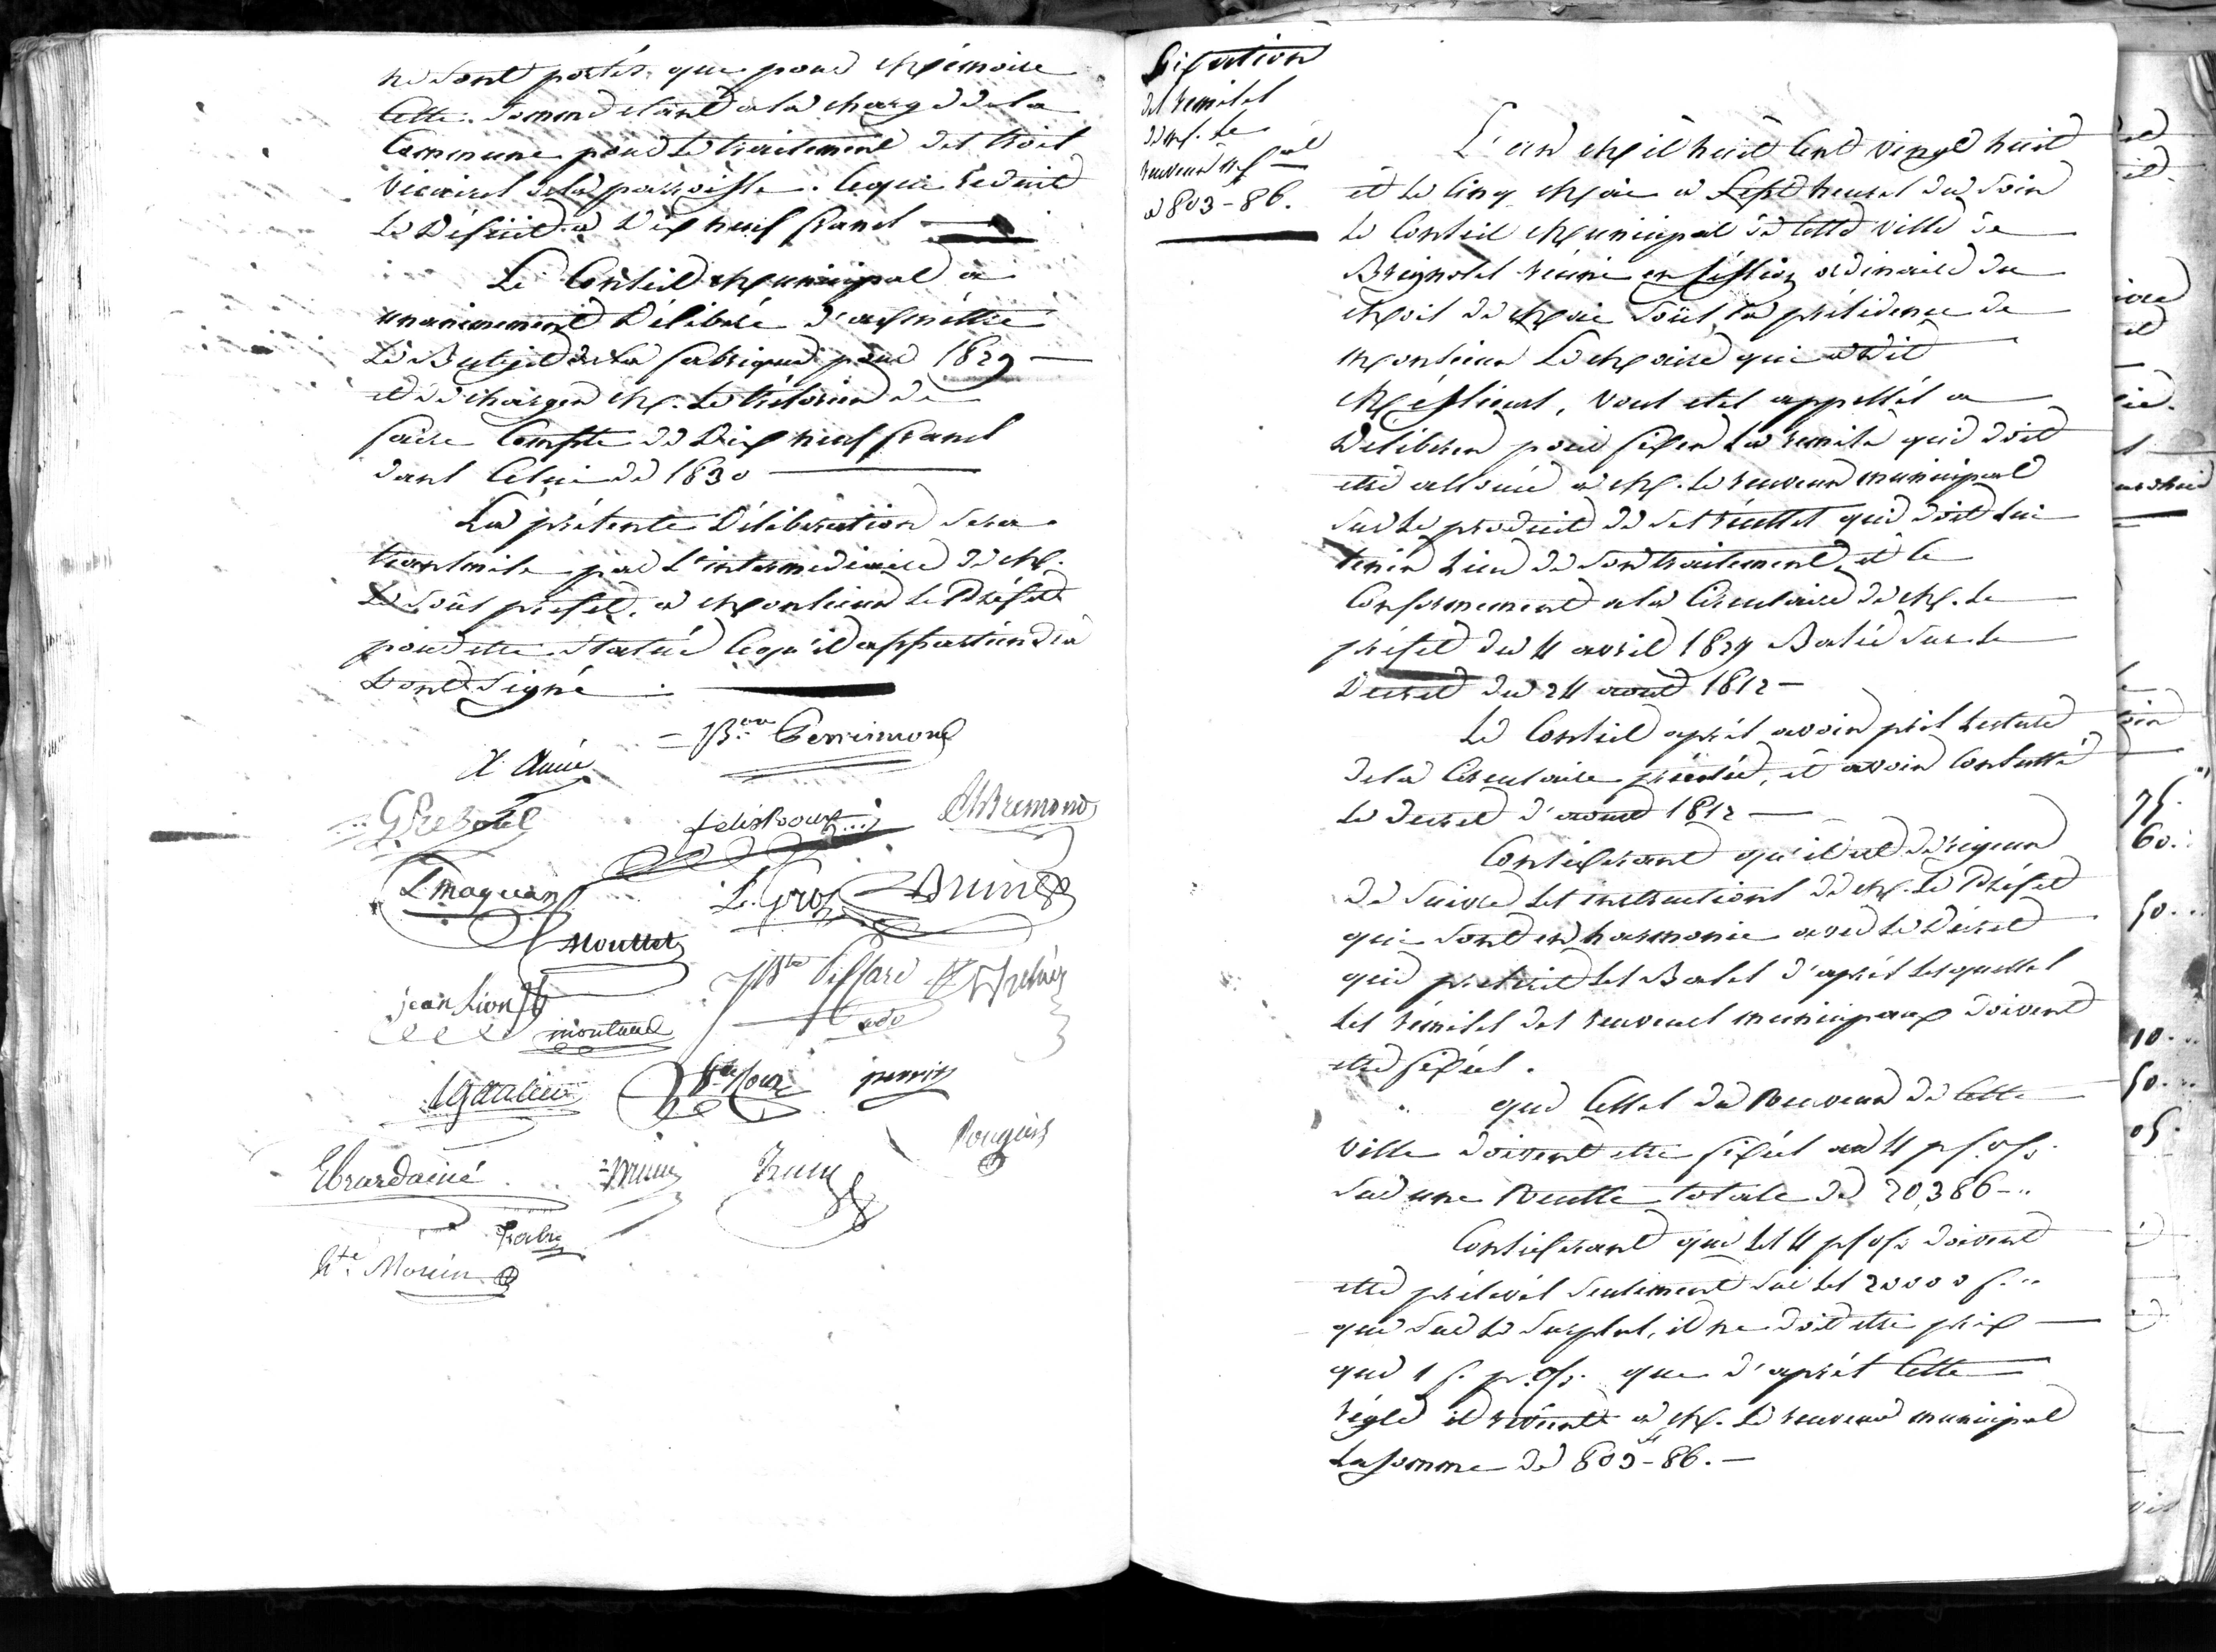 ne sont portés que pour Mémoire
Cette Somme etant a la charge de la
Commune pour le traitement des trois
vicaires de la parroisse. Cequi reduit
le Déficit a Dix neuf francs
Le Conseil Municipal a
unanimement Délibéré d'admèttre
Le Budjet de la fabrique pour 1829
et de charger M. le trésorier de
faire Compte de Dix neuf francs
dans Celui de 1830
La présente Délibération sera
transmise par L'intermediaire de M.
Le Sous préfet, a Monsieur le Préfet
pour etre Statué Cequ'il appartiendra
Et ont Signé
Perrimond
X Ainé
G Reboul
felix Roux
Bremond
L. Maquan
Le Gros
Brunet
Mouttet
jean Lion
Jn Bte Piffard
moutaud
perrin
Rougiers
Ebrard ainé
Brun
fabre
hte Morin
Fixation
des remises
de M. le
receveur mpal
a 803-86.
L'an Mil huit Cent vingt huit
et le cinq Mai a Sept heures du soir
le Conseil Municipal de cette ville de
Brignoles réuni en Séssion ordinaire du
Mois de Mai sous la présidence de
Monsieur Le Maire qui a dit
Méssieurs, vous etes appellés a
Déliberer pour fixer la remise qui doit
etre allouée a M. le receveur municipal
sur le produit de ses récettes qui doit lui
tenir lieu de son traitement, et ce
Conformement a la Circulaire de M. le
préfet du 4 avril 1827 Basée sur le
Decret du 24 aout 1812 -
Le Conseil aprés avoir pris lecture
de la Circulaire précitée, et avoir Consulté
le Decret d'aout 1812
Considerant qu'il est de rigueur
de Suivre les instructions de M. le Préfet
qui sont en harmonie avec le Décret
qui prescrit les Bases d'aprés lesquelles
les rémises des receveurs municipaux doivent
etre fixées.
que Celles du Receveur de Cette
ville doivent etre fixées au 4 p% 
sur une Recette totale de 20,386-"
Considerant que les 4 p% doivent
etre prélevés seulement sur les 20000 f. "
que sur le Surplus, il ne doit etre pris
que 1 f. p. %. que d'aprés Cette
régle il revient a M. le receveur municipal
La somme de 803-86. -